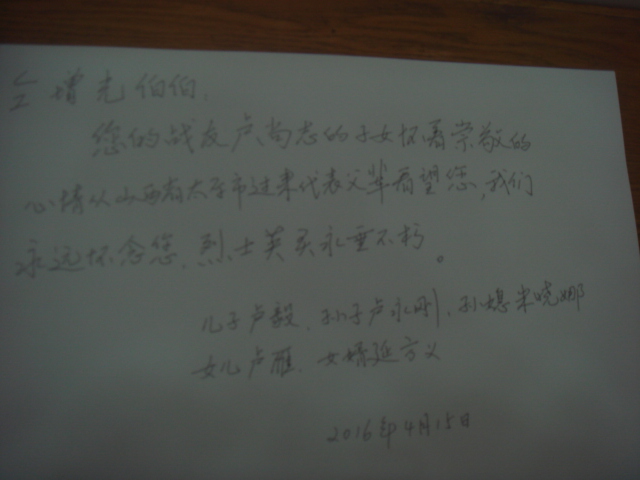 仝增光伯伯:
您的战友卢尚志的子女怀着崇敬的
心情从山西省太原市过来代表父辈看望您,我们
永远怀念您、烈士英灵永垂不朽。
儿子卢毅、孙子卢永刚、孙媳米晓娜
女儿卢雁、女婿延方义
2016年4月15日